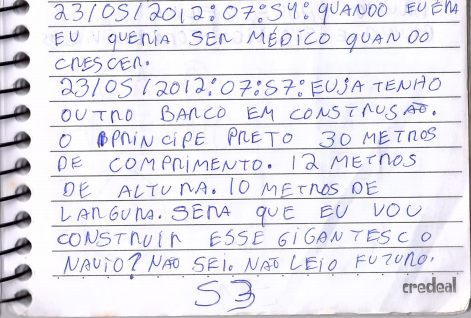 23/05/2012:07:54: QUANDO EU ERA
EU QUERIA SER MÉDICO QUANDO
CRESCER.
23/05/2012:07:57: EU JA TENHO
OUTRO BARCO EM CONSTRUSÃO.
O PRINCIPE PRETO 30 METROS
DE COMPRIMENTO. 12 METROS
DE ALTURA. 10 METROS DE
LARGURA. SERA QUE EU VOU
CONSTRUIR ESSE GIGANTESCO
NAVIO? NAO SEI. NAO LEIO FUTURO.
credeal
53